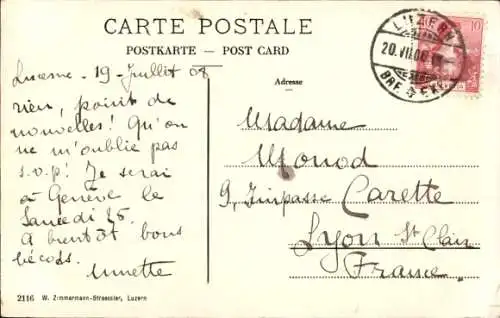 CARTE POSTALE
POSTKARTE — POST CARD
Adresse
LUZERN
20.VII.08
BRF. EXP.
10
Lucerne - 19 - Juillet 08
rien, point de
nouvelles! Qu'on
ne m'oublie pas
s.v.p! Je serai
à Genève le
Samedi 25.
A bientôt bons
bécots.
Annette
Madame
Monod
9, Impasse Carette
Lyon St Clair
France
2116 W. Zimmermann-Strassler, Luzern